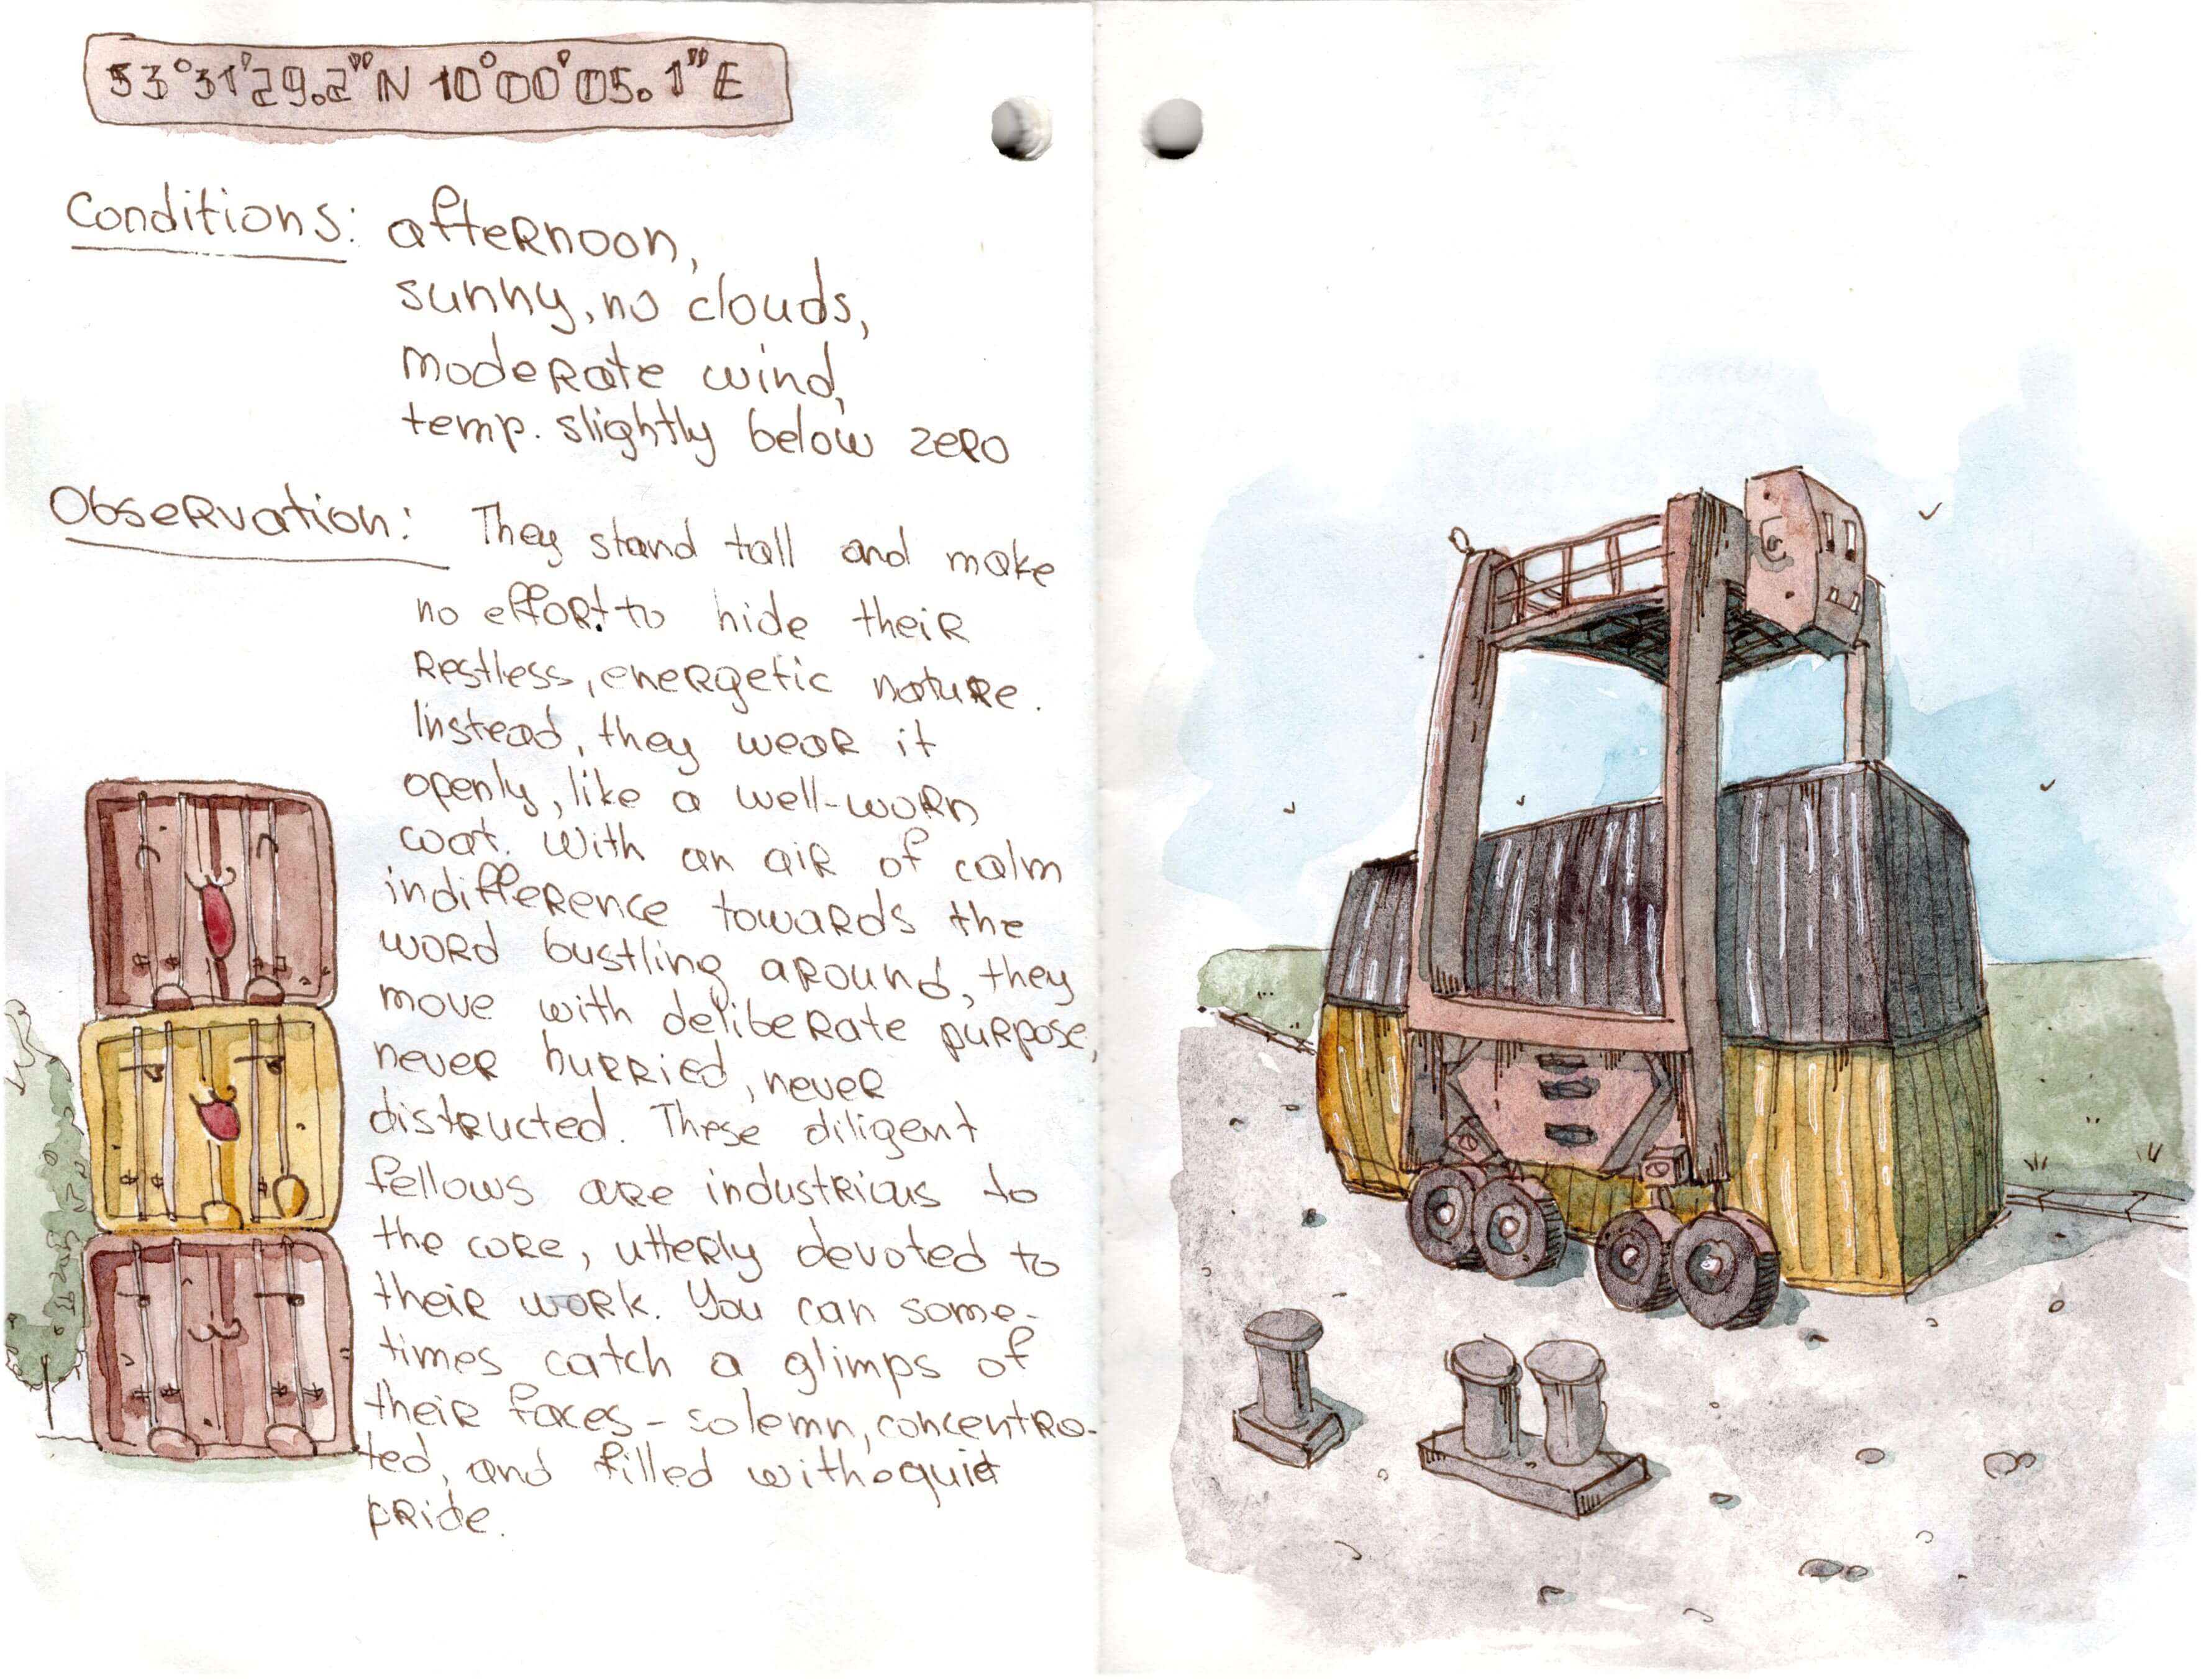 53°31'29.2"N 10°00'05.1"E
Conditions: afternoon,
sunny, no clouds,
moderate wind,
temp. slightly below zero
Observation: They stand tall and make
no effort to hide their
Restless, energetic nature.
Instead, they wear it
openly, like a well-worn
coat. With an air of calm
indifference towards the
word bustling around, they
move with deliberate purpose,
never hurried, never
distructed. These diligent
fellows are industrious to
the core, utterly devoted to
their work. You can some-
times catch a glimps of
their faces - solemn, concentra-
ted, and filled with a quiet
pride.